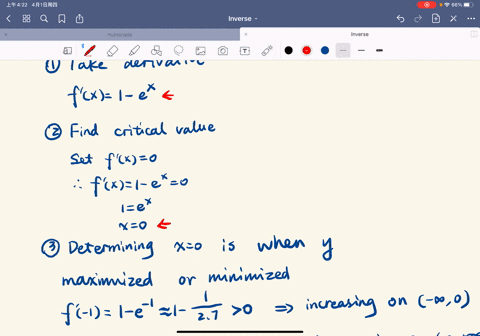 上午4:22 4月1日周四
66%
Inverse
Numerade
Inverse
① Take derivative
f'(x) = 1 - eˣ ←
② Find critical value
Set f'(x) = 0
∴ f'(x) = 1 - eˣ = 0
1 = eˣ
x = 0 ←
③ Determining x=0 is when y
maximized or minimized
f'(-1) = 1 - e⁻¹ ≈ 1 - 1/2.7 > 0 ⇒ increasing on (-∞, 0)